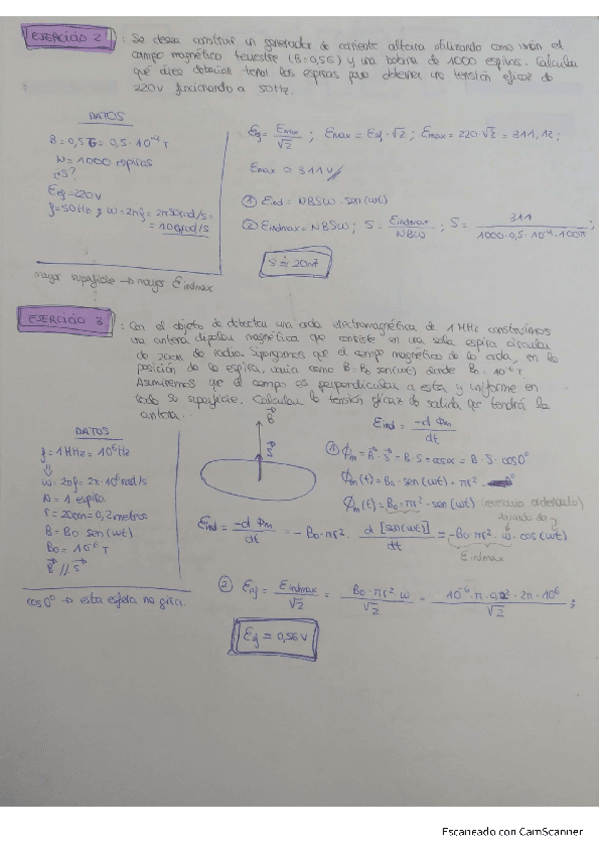 EJERCICIO 2 : Se desea construir un generador de corriente alterna utilizando como imán el
campo magnético terrestre (B=0,5G) y una bobina de 1000 espiras. Calcular
qué área deberían tener las espiras para obtener una tensión eficaz de
220V funcionando a 50Hz.
DATOS
B = 0,5G = 0,5·10⁻⁴T
N = 1000 espiras
¿S?
Eef = 220V
f = 50Hz ; ω = 2πf = 2π50rad/s =
= 100πrad/s
mayor superficie → mayor Eindmax
Eef = Emax/√2 ; Emax = Eef·√2 ; Emax = 220·√2 = 311,12 ;
Emax ≈ 311V
① Eind = NBSω · sen(ωt)
② Eindmax = NBSω ; S = Eindmax/NBω ; S = 311/1000·0,5·10⁻⁴·100π
S ≈ 20m²
EJERCICIO 3 : Con el objeto de detectar una onda electromagnética de 1MHz construimos
una antena dipolar magnética que consiste en una sola espira circular
de 20cm de radio. Supongamos que el campo magnético de la onda, en la
posición de la espira, varía como B=B₀ sen(ωt) donde B₀ = 10⁻⁶T
Asumiremos que el campo es perpendicular a esta y uniforme en
toda su superficie. Calcular la tensión eficaz de salida que tendrá la
antena.
DATOS
f = 1MHz = 10⁶Hz
⇓
ω = 2πf = 2π·10⁶rad/s
N = 1 espira
r = 20cm = 0,2 metros
B = B₀ sen(ωt)
B₀ = 10⁻⁶T
B⃗ // S⃗
cos0° → esta espira no gira.
B⃗
S⃗
Eind = -dΦm/dt
① Φm = B⃗·S⃗ = B·S·cosα = B·S·cos0°
Φm(t) = B₀·sen(ωt)·πr²
Φm(t) = B₀·πr²·sen(ωt)
Eind = -dΦm/dt = -B₀·πr²· d[sen(ωt)]/dt = -B₀·πr²·ω·cos(ωt)
Eindmax
② Eef = Eindmax/√2 = B₀·πr²·ω/√2 = 10⁻⁶·π·0,2²·2π·10⁶/√2 ;
Eef = 0,56V
Escaneado con CamScanner